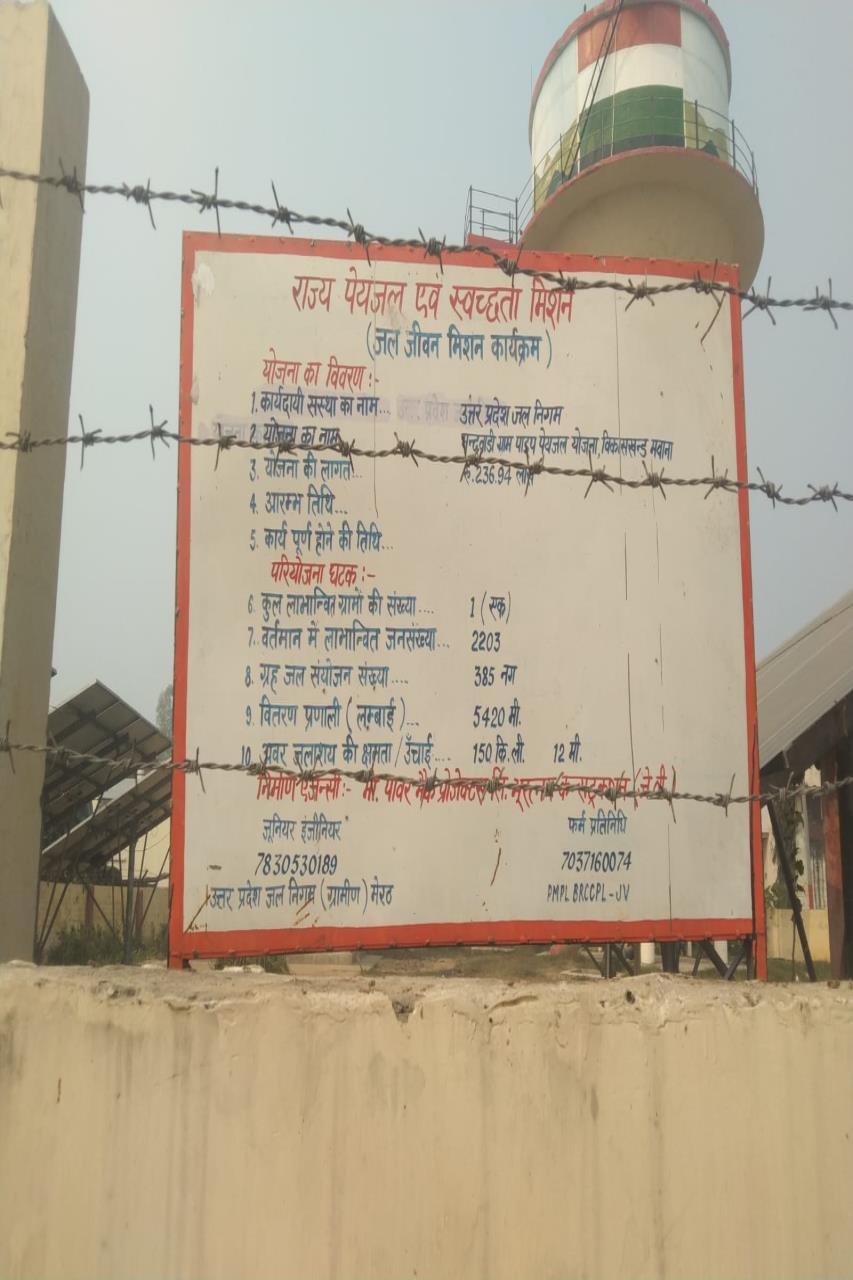 राज्य पेयजल एवं स्वच्छता मिशन
(जल जीवन मिशन कार्यक्रम)
योजना का विवरण :-
1. कार्यदायी संस्था का नाम... उत्तर प्रदेश जल निगम
2. योजना का नाम ग्राम पाइप पेयजल योजना, विकासखन्ड मवाना
3. योजना की लागत... रु.236.94 लाख
4. आरम्भ तिथि...
5. कार्य पूर्ण होने की तिथि...
परियोजना घटक :-
6. कुल लाभान्वित ग्रामों की संख्या.... 1 (एक)
7. वर्तमान में लाभान्वित जनसंख्या... 2203
8. ग्रह जल संयोजन संख्या .... 385 नग
9. वितरण प्रणाली (लम्बाई)... 5420 मी.
10. अवर जलाशय की क्षमता / उँचाई.... 150 कि.ली. 12 मी.
निर्माण ऐजेन्सी :- मै. पावर मैक प्रोजेक्टस लि.
जूनियर इंजीनियर फर्म प्रतिनिधि
7830530189 7037160074
उत्तर प्रदेश जल निगम (ग्रामीण) मेरठ PMPL BRCCPL-JV